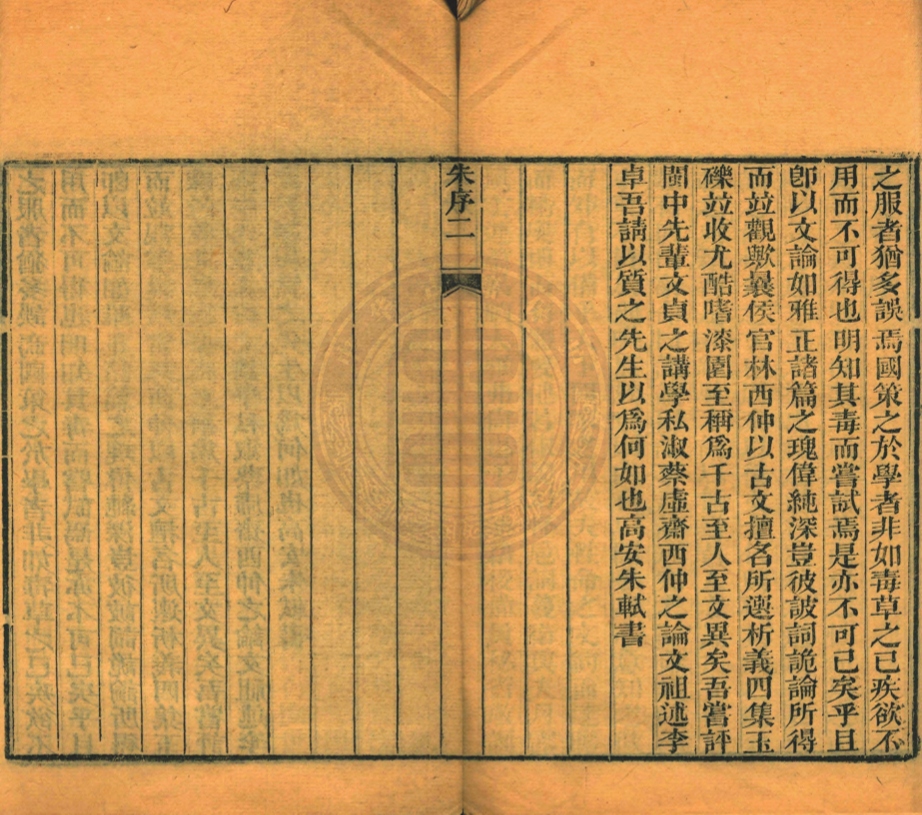 之服者猶多誤焉國策之於學者非如毒草之已疾欲不
用而不可得也明知其毒而嘗試焉是亦不可已矣乎且
卽以文論如雅正諸篇之瑰偉純深豈彼詖詞詭論所得
而竝觀歟曩侯官林西仲以古文擅名所選析義四集玉
礫竝收尤酷嗜漆園至稱爲千古至人至文異矣吾嘗評
閩中先輩文貞之講學私淑蔡虛齋西仲之論文祖述李
卓吾請以質之先生以爲何如也高安朱軾書
朱序二